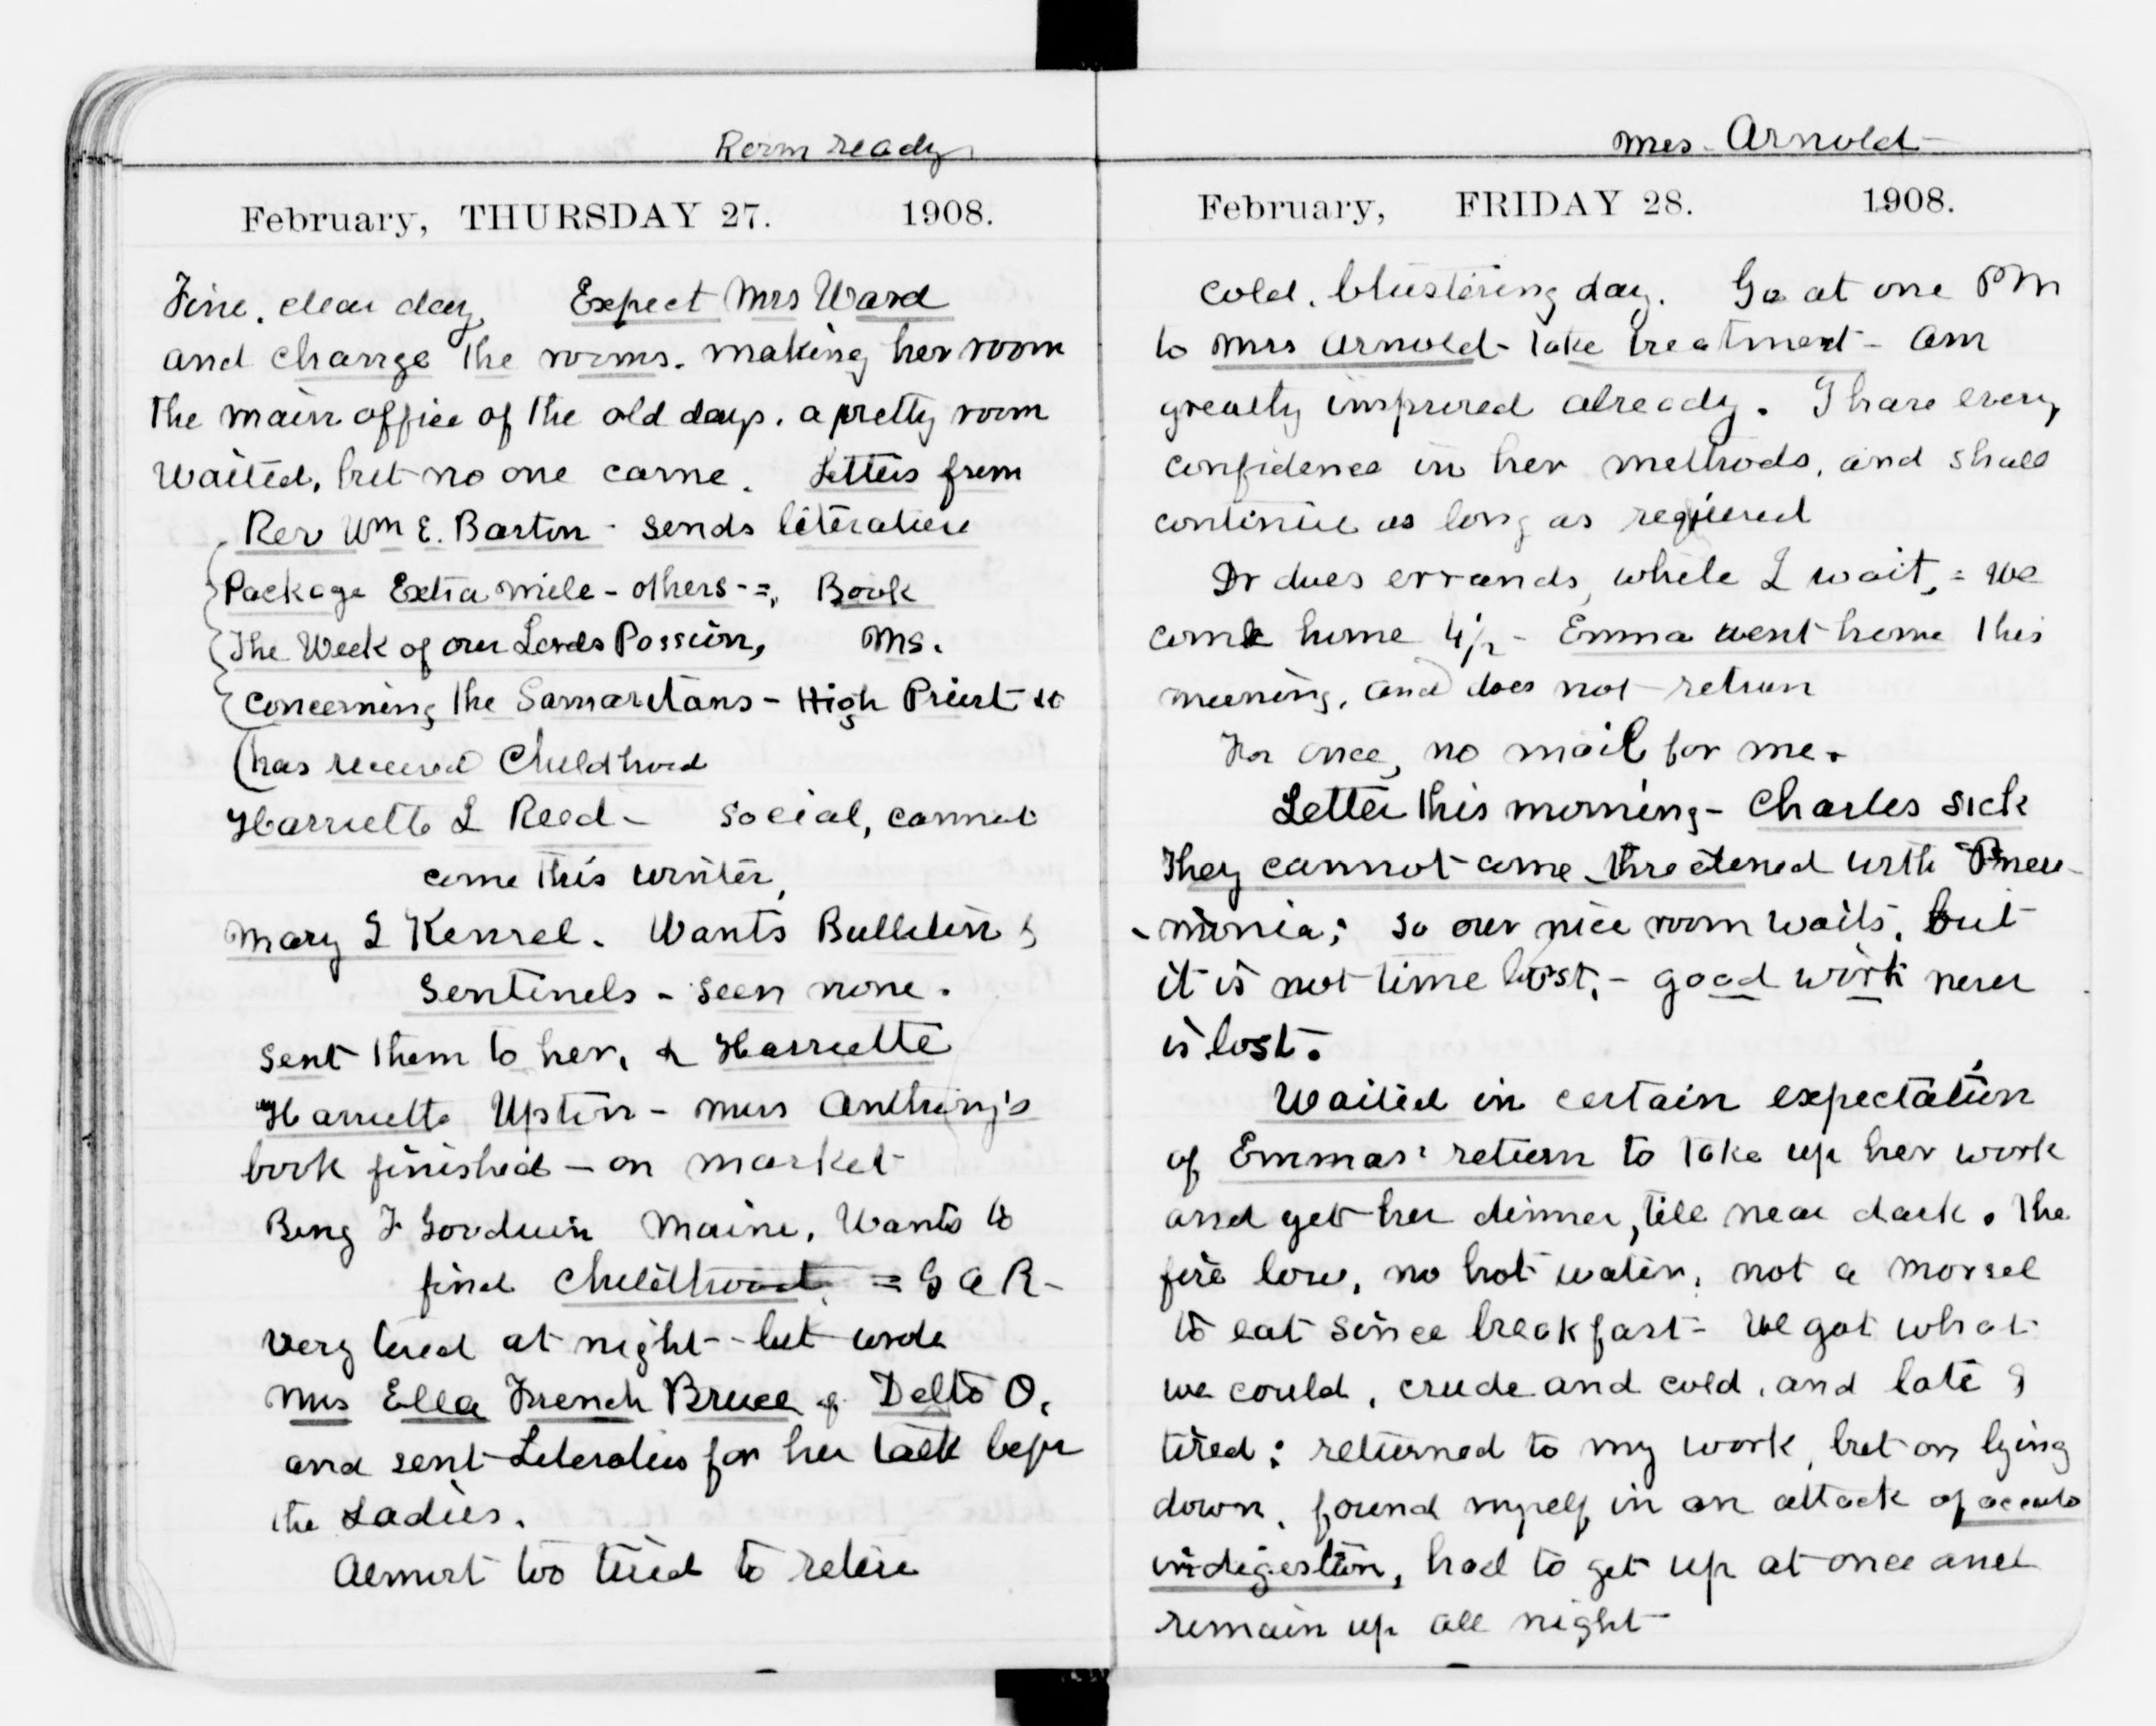 Room ready
February, THURSDAY 27. 1908.
Fine, clear day, Expect Mrs Ward
and change the rooms. making her room
the main office of the old days. a pretty room
Waited, but no one came. Letters from
Rev Wm E. Barton - sends literature
Package Extra mile - others - =, Book
The Week of our Lords Passion, Ms.
Concerning the Samaritans - High Priest &c
has received Childhood
Harriette L Reed - Social, cannot
come this winter,
Mary I Kensel. Wants Bulletin &
Sentinels - seen none.
sent them to her, & Harriette
Harriette Upton - Miss Anthony's
book finished - on market
Benj F Goodwin Maine. Wants to
find Childhood = G A R -
Very tired at night - but wrote
Mrs Ella French Bruce of Delta O,
and sent Literature for her talk before
the Ladies.
Almost too tired to retire
Mrs. Arnold
February, FRIDAY 28. 1908.
Cold, blustering day. Go at one PM
to Mrs Arnold - take treatment - am
greatly improved already. I have every
confidence in her methods, and shall
continue as long as required
Dr does errands, while I wait, = We
come home 4½ - Emma went home this
morning, and does not return
For once, no mail for me.
Letter this morning - Charles sick
They cannot come threatened with Pneu-
monia; so our nice room waits, but
it is not time lost, - good work never
is lost.
Waited in certain expectation
of Emmas' return to take up her work
and get her dinner, till near dark. The
fire low, no hot water, not a morsel
to eat since breakfast - We got what
we could, crude and cold, and late &
tired; returned to my work, but on lying
down, found myself in an attack of accute
indigestion, had to get up at once and
remain up all night